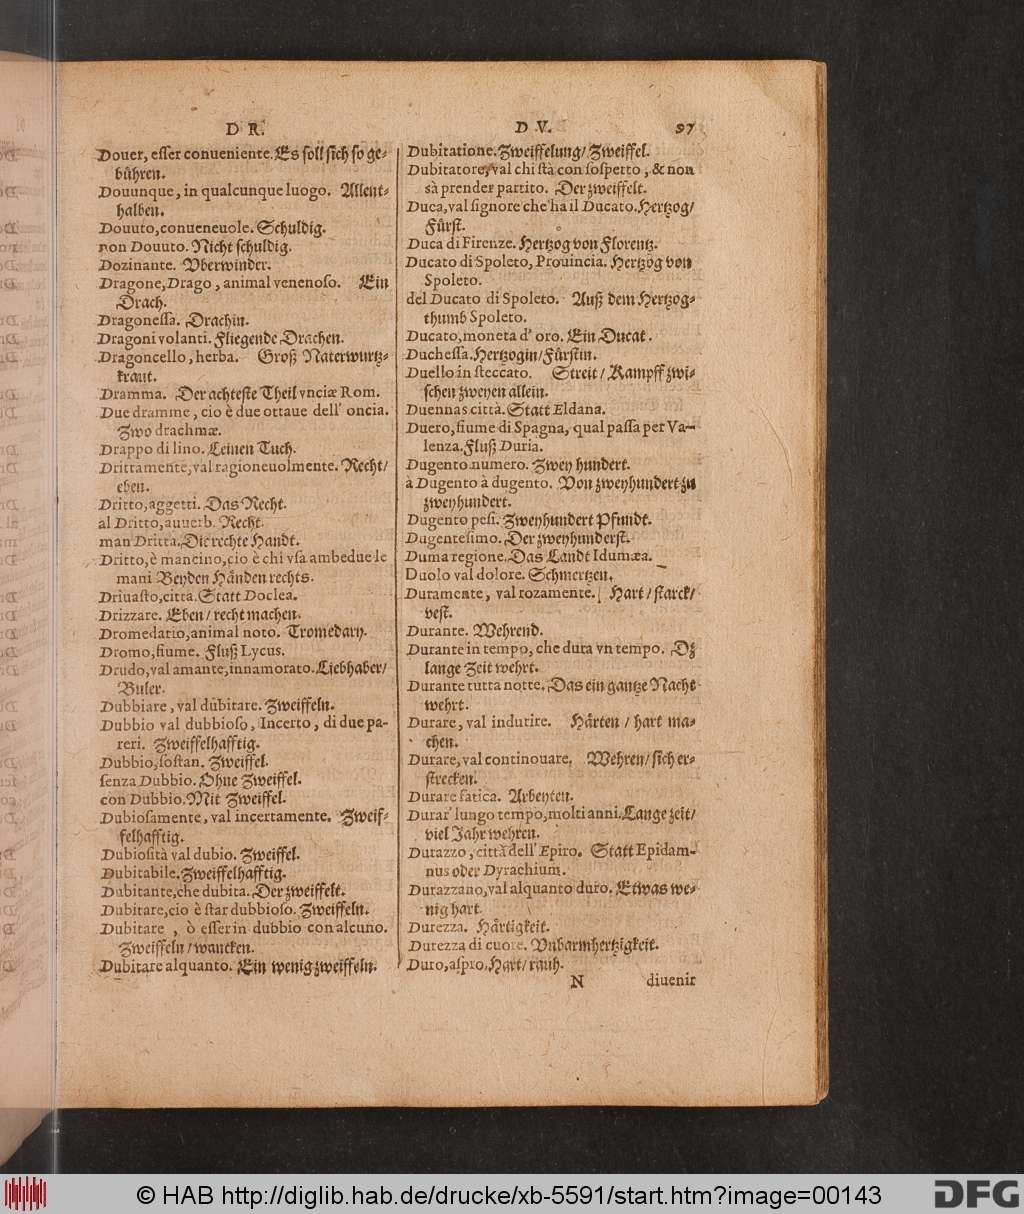 D R.
Douer, eſſer conueniente. Es ſoll ſich ſo ge-
bühren.
Douunque, in qualcunque luogo. Allent-
halben.
Douuto, conueneuole. Schuldig.
non Douuto. Nicht ſchuldig.
Dozinante. Vberwinder.
Dragone, Drago, animal venenoſo. Ein
Drach.
Dragoneſſa. Drachin.
Dragoni volanti. Fliegende Drachen.
Dragoncello, herba. Groß Naterwurtz-
kraut.
Dramma. Der achteſte Theil vnciæ Rom.
Due dramme, cio è due ottaue dell' oncia.
Zwo drachmæ.
Drappo di lino. Leinen Tuch.
Drittamente, val ragioneuolmente. Recht/
eben.
Dritto, aggetti. Das Recht.
al Dritto, auuerb. Recht.
man Dritta. Die rechte Handt.
Dritto, è mancino, cio è chi vſa ambedue le
mani Beyden Händen rechts.
Driuaſto, citta. Statt Doclea.
Drizzare. Eben/ recht machen.
Dromedario, animal noto. Tromedary.
Dromo, fiume. Fluß Lycus.
Drudo, val amante, innamorato. Liebhaber/
Buler.
Dubbiare, val dubitare. Zweiffeln.
Dubbio val dubbioſo, Incerto, di due pa-
reri. Zweiffelhafftig.
Dubbio, ſoſtan. Zweiffel.
ſenza Dubbio. Ohne Zweiffel.
con Dubbio. Mit Zweiffel.
Dubioſamente, val incertamente. Zweif-
felhafftig.
Dubioſità val dubio. Zweiffel.
Dubitabile. Zweiffelhafftig.
Dubitante, che dubita. Der zweiffelt.
Dubitare, cio è ſtar dubbioſo. Zweiffeln.
Dubitare, ò eſſer in dubbio con alcuno.
Zweiffeln/ wancken.
Dubitare alquanto. Ein wenig zweiffeln.
D V. 97
Dubitatione. Zweiffelung/ Zweiffel.
Dubitatore, val chi ſtà con ſoſpetto, & non
sà prender partito. Der zweiffelt.
Duca, val ſignore che ha il Ducato. Hertzog/
Fürſt.
Duca di Firenze. Hertzog von Florentz.
Ducato di Spoleto, Prouincia. Hertzog von
Spoleto.
del Ducato di Spoleto. Auß dem Hertzog-
thumb Spoleto.
Ducato, moneta d' oro. Ein Ducat.
Ducheſſa. Hertzogin/ Fürſtin.
Duello in ſteccato. Streit/ Kampff zwi-
ſchen zweyen allein.
Duennas città. Statt Eldana.
Duero, fiume di Spagna, qual paſſa per Va-
lenza. Fluß Duria.
Dugento numero. Zwey hundert.
à Dugento à dugento. Von zweyhundert zu
zweyhundert.
Dugento peſi. Zweyhundert Pfundt.
Dugenteſimo. Der zweyhunderſt.
Duma regione. Das Landt Idumæa.
Duolo val dolore. Schmertzen.
Duramente, val rozamente. Hart/ ſtarck/
veſt.
Durante. Wehrend.
Durante in tempo, che dura vn tempo. Dz
lange Zeit wehrt.
Durante tutta notte. Das ein gantze Nacht
wehrt.
Durare, val indurire. Härten/ hart ma-
chen.
Durare, val continouare. Wehren/ ſich er-
ſtrecken.
Durare fatica. Arbeyten.
Durar' lungo tempo, molti anni. Lange zeit/
viel Jahr wehren.
Durazzo, città dell' Epiro. Statt Epidam-
nus oder Dyrachium.
Durazzano, val alquanto duro. Etwas we-
nig hart.
Durezza. Härtigkeit.
Durezza di cuore. Vnbarmhertzigkeit.
Duro, aſpro. Hart/ rauh.
N diuenir
© HAB http://diglib.hab.de/drucke/xb-5591/start.htm?image=00143
DFG